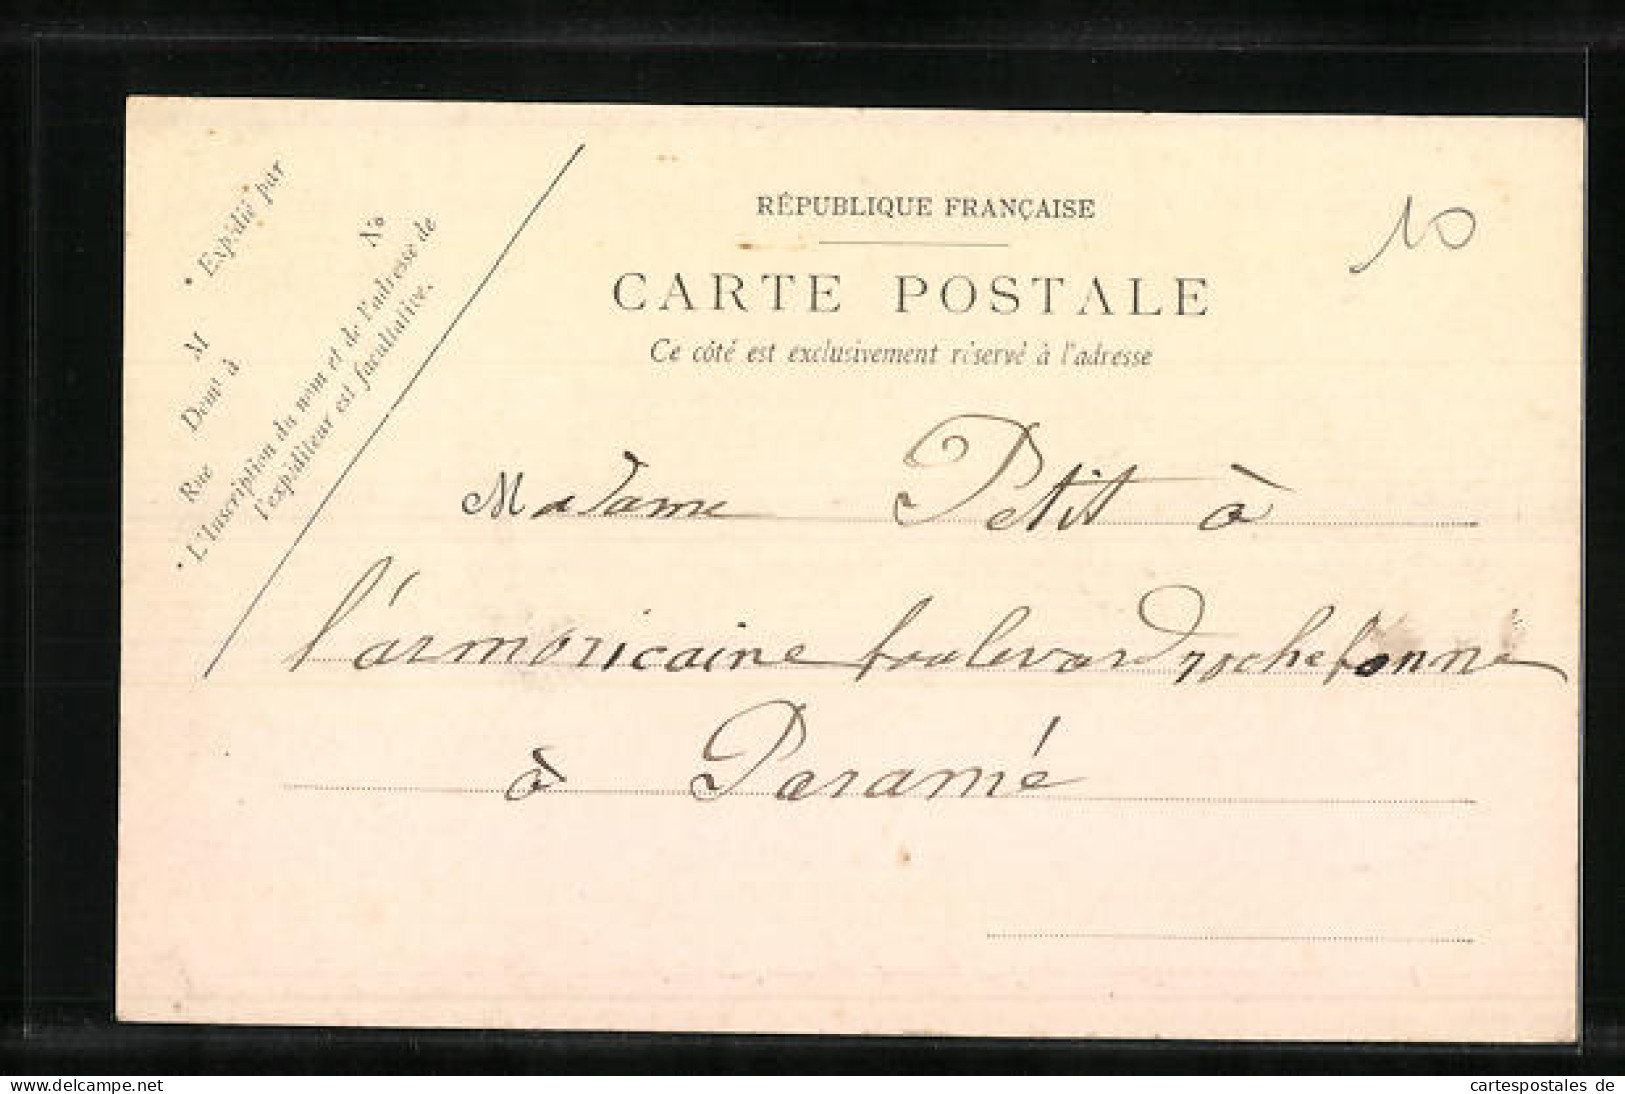 * Expédié par
M
Demt à
Rue
No
* L'Inscription du nom et de l'adresse de
l'expéditeur est facultative.
RÉPUBLIQUE FRANÇAISE
CARTE POSTALE
Ce côté est exclusivement réservé à l'adresse
10
Madame Petit à
l'armoricaine boulevard rochebonne
à Paramé
www.delcampe.net
cartespostales de